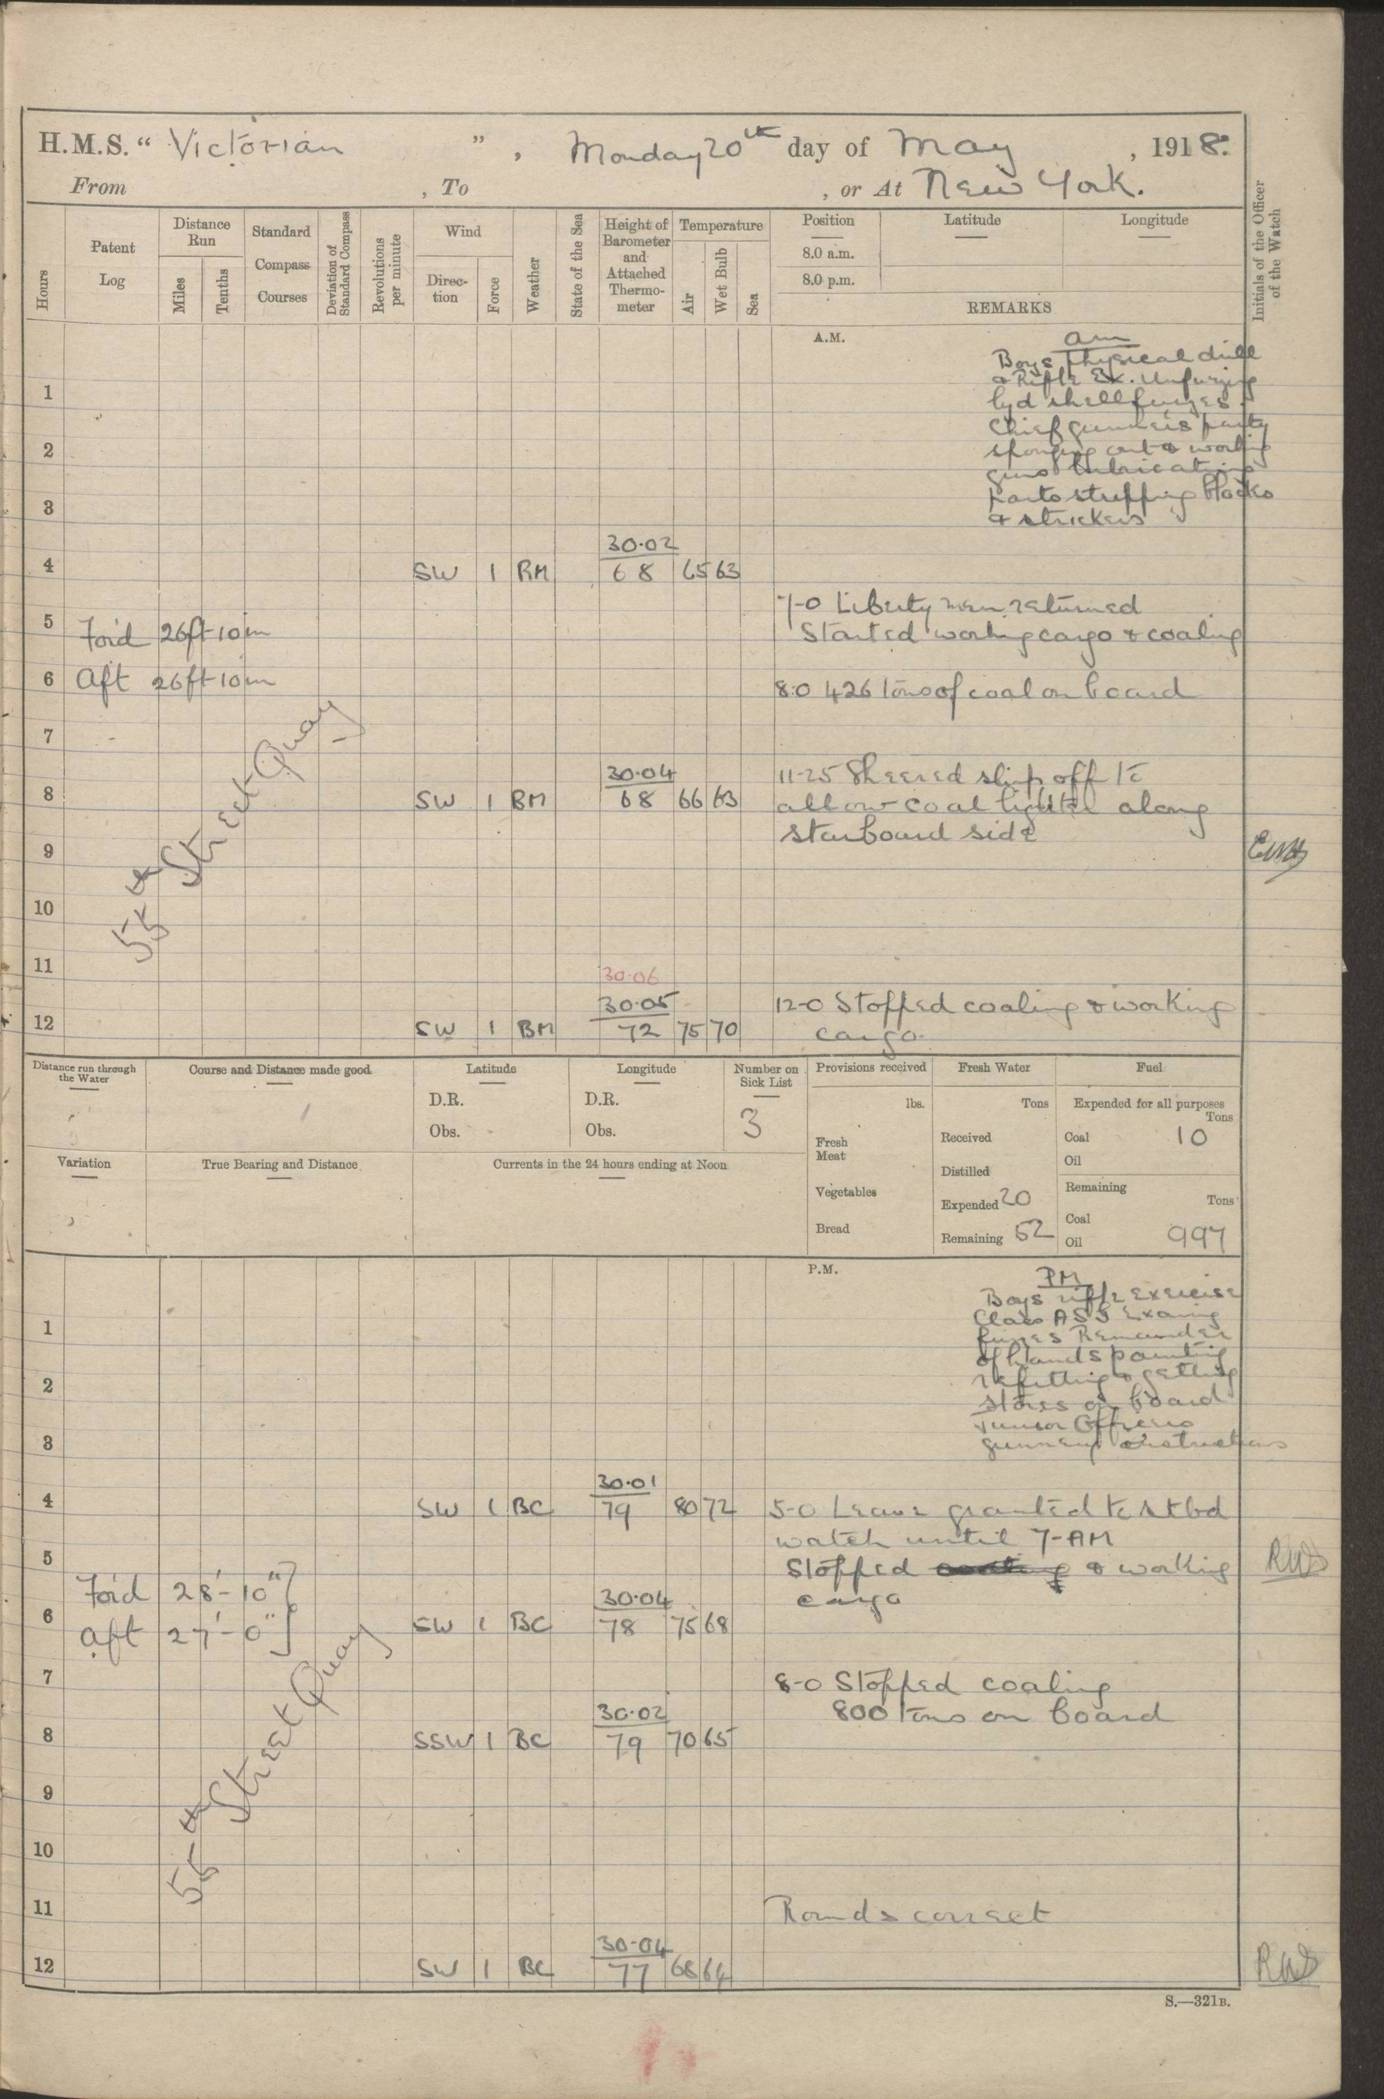 H.M.S. " Victorian " , Monday 20th day of May , 1918.
From , To , or At New York.
Hours
Patent Log
Distance Run
Miles
Tenths
Standard Compass Courses
Deviation of Standard Compass
Revolutions per minute
Wind
Direction
Force
Weather
State of the Sea
Height of Barometer and Attached Thermometer
Temperature
Air
Wet Bulb
Sea
Position
Latitude
Longitude
8.0 a.m.
8.0 p.m.
REMARKS
Initials of the Officer of the Watch
A.M.
am
Boys Physical drill
& Rifle Ex. Unfuzing
lyd shell fuzes.
Chief Gunners party
sponging out & working
guns lubricating
parts stripping blocks
& strickers
1
2
3
30.02
4 SW 1 RM 68 65 63
7-0 Liberty men returned
5 For'd 26ft 10in
Started working cargo & coaling
6 Aft 26ft 10in
8.0 426 tons of coal on board
7
30.04
11-25 Sheered ship off to
8 SW 1 BM 68 66 63
allow coal lighter along
starboard side
9
55th Street Quay
10
11
30.06
30.05
12-0 Stopped coaling & working
12 SW 1 BM 72 75 70
cargo.
Distance run through the Water
Course and Distance made good
Latitude
D.R.
Obs.
Longitude
D.R.
Obs.
Number on Sick List
3
Provisions received
lbs.
Fresh Meat
Vegetables
Bread
Fresh Water
Tons
Received
Distilled
Expended 20
Remaining 52
Fuel
Expended for all purposes
Tons
Coal 10
Oil
Remaining
Tons
Coal
Oil 997
Variation
True Bearing and Distance
Currents in the 24 hours ending at Noon
P.M.
PM
Boys rifle exercise
Class ASS Examing
fuzes Remainder
of hands painting
refitting & getting
stores on board
Junior Officers
gunnery instructions
1
2
3
30.01
4 SW 1 BC 79 80 72
5-0 Leave granted to stbd
watch until 7-AM
5
Stopped & working
RWS
For'd 28'-10"
30.04
cargo
6 SW 1 BC 78 75 68
Aft 27'-0"
7
8-0 Stopped coaling
30.02
800 tons on board
8 SSW 1 BC 79 70 65
9
55th Street Quay
10
11
Rounds correct
30.04
12 SW 1 BC 77 68 64
RWS
S.—321B.